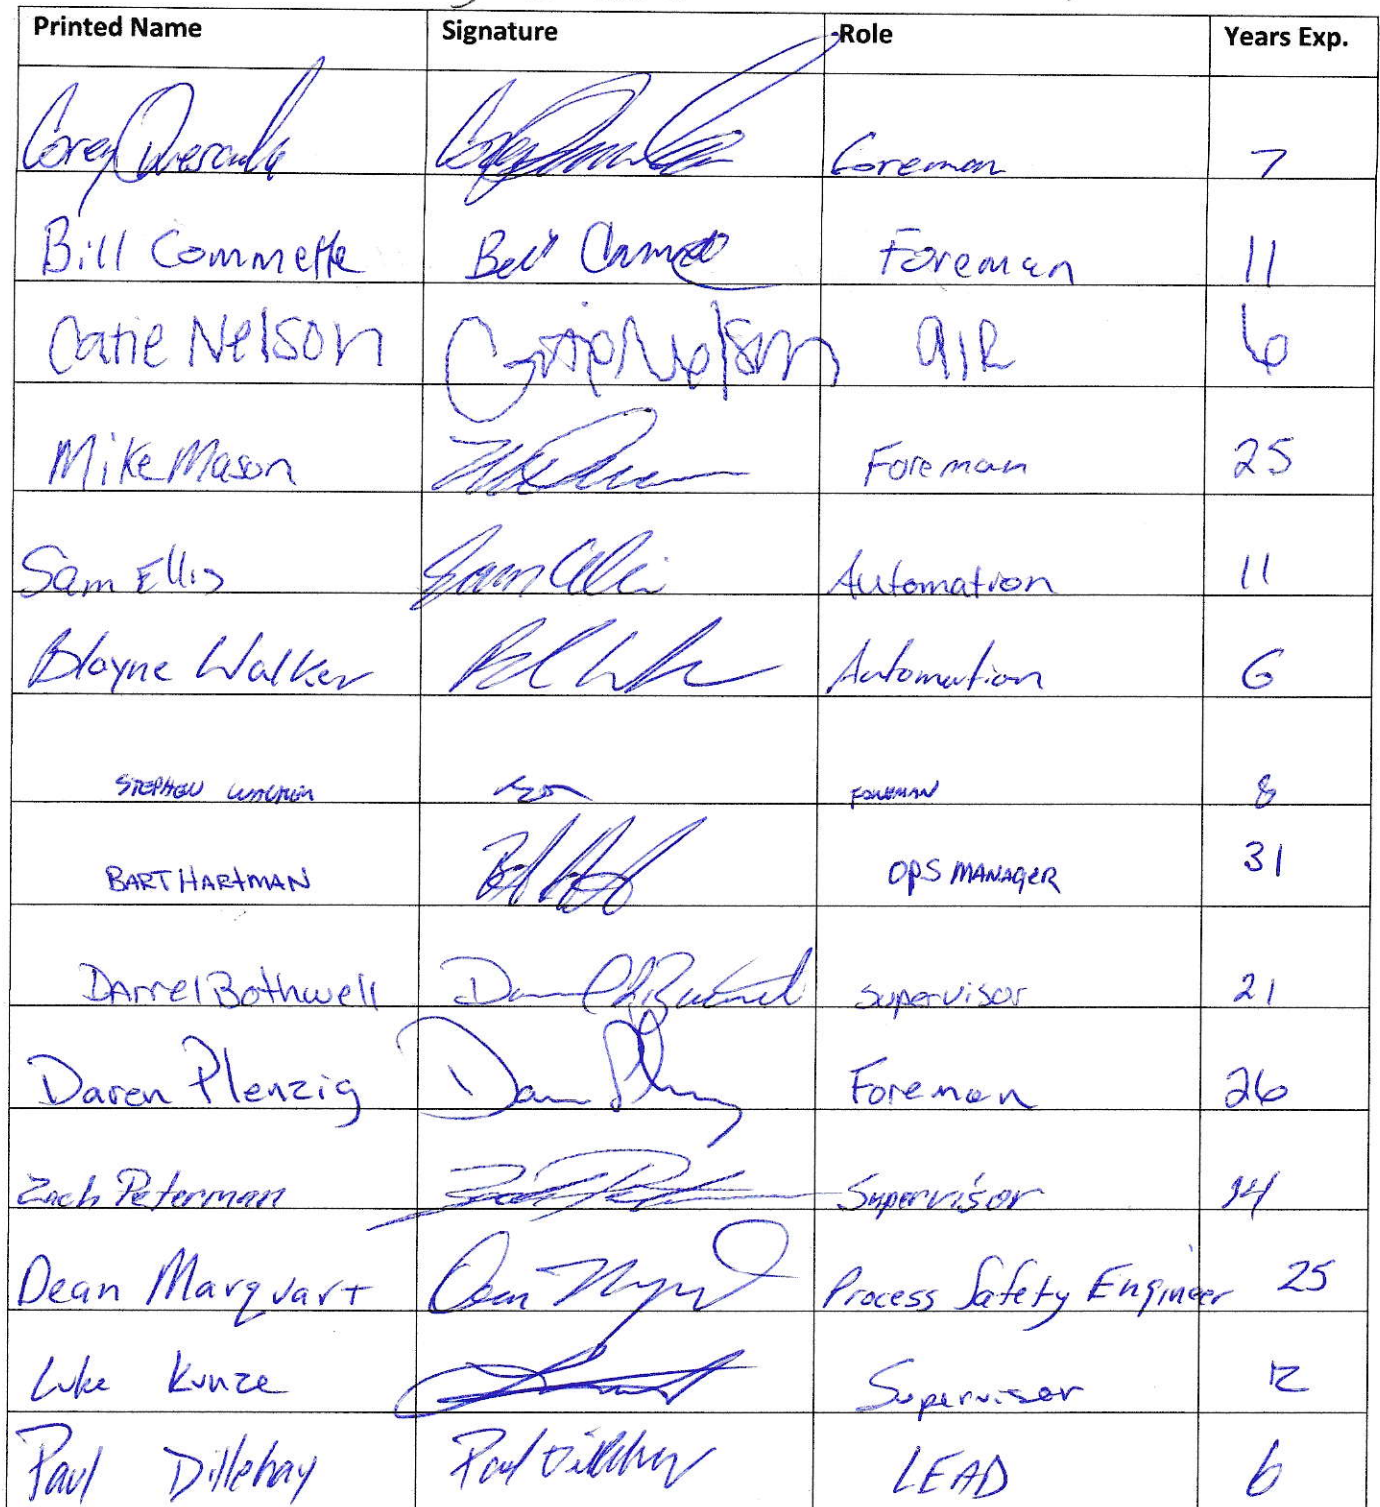 Printed Name Signature Role Years Exp.
Corey Foreman 7
Bill Commette Bill Foreman 11
Catie Nelson Catie Nelson AIR 6
Mike Mason Foreman 25
Sam Ellis Sam Ellis Automation 11
Blayne Walker Automation 6
STEPHEN FOREMAN 8
BART HARTMAN OPS MANAGER 31
Darrel Bothwell Supervisor 21
Daren Plenzig Foreman 26
Zach Peterman Supervisor 14
Dean Marquart Process Safety Engineer 25
Luke Kunze Supervisor 12
Paul Dillehay Paul Dillehay LEAD 6